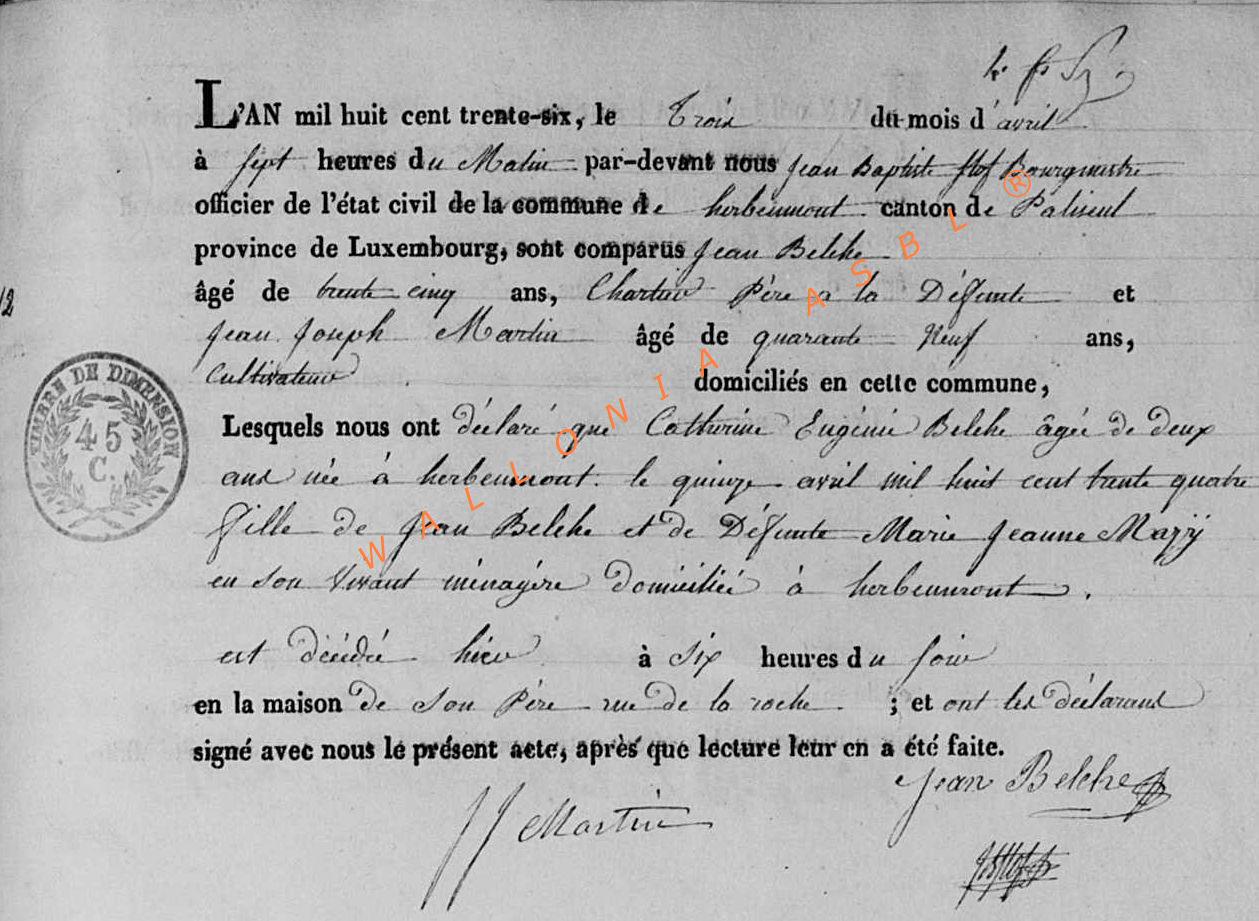 L'AN mil huit cent trente-six, le Trois du mois d'avril
à sept heures du Matin par-devant nous Jean Baptiste Bourgmestre
officier de l'état civil de la commune de herbeumont canton de Paliseul
province de Luxembourg, sont comparus Jean Belche
âgé de trente cinq ans, Père a la Défunte et
12
Jean Joseph Martin âgé de quarante Neuf ans,
Cultivateur domiciliés en cette commune,
TIMBRE DE DIMENSION
45
C.
Lesquels nous ont déclaré que Catherine Eugénie Belche âgée de deux
ans née à herbeumont le quinze avril mil huit cent trente quatre
fille de Jean Belche et de Défunte Marie Jeanne Mazÿ
en son vivant ménagère domiciliée à herbeumont.
est décédée hier à six heures du soir
en la maison de son Père rue de la roche ; et ont les déclarans
signé avec nous le présent acte, après que lecture leur en a été faite.
Jean Belche
JJ Martin
WALLONIA ASBL ®